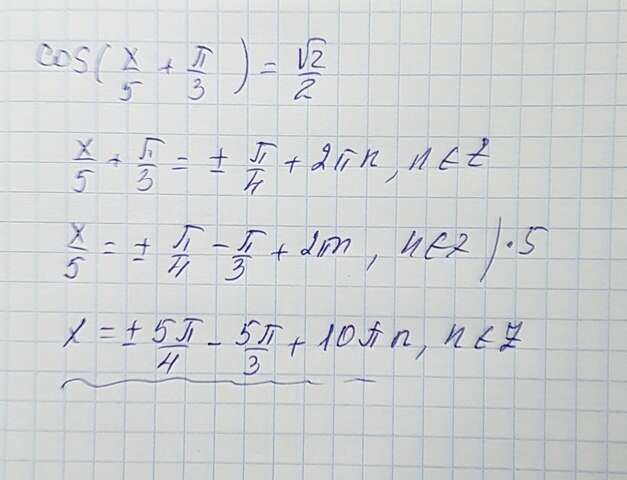 cos(x/5 + π/3) = √2/2
x/5 + π/3 = ± π/4 + 2πn, n ∈ Z
x/5 = ± π/4 - π/3 + 2πn, n ∈ Z) · 5
x = ± 5π/4 - 5π/3 + 10πn, n ∈ Z